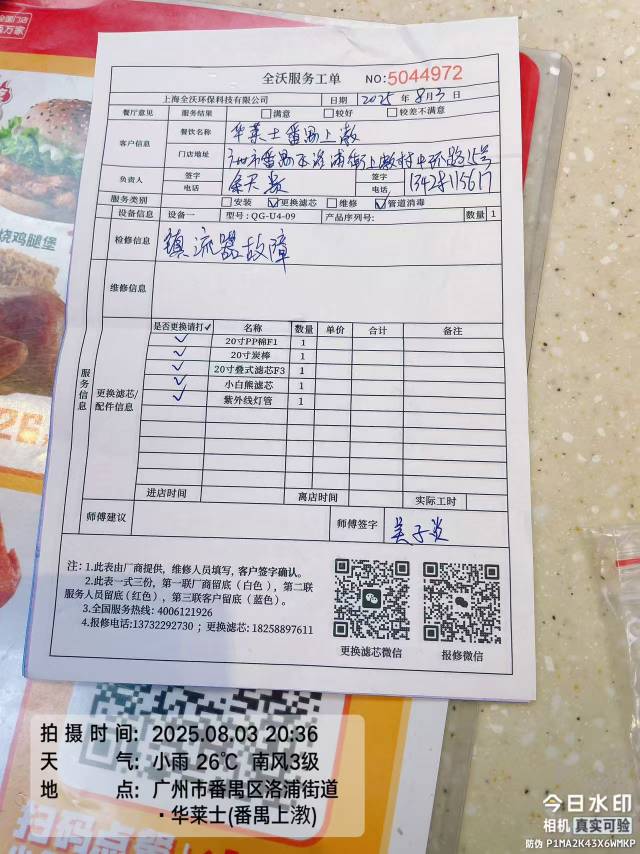 全沃服务工单 NO:5044972
上海全沃环保科技有限公司 日期 2025 年 8月3日
餐厅意见 服务结果 满意 较好 较差不满意
客户信息 餐饮名称 华莱士番禺上漖
门店地址 广州市番禺区洛浦街上漖村中环路15号
负责人 签字 电话 签字 电话 13428115617
服务类别 安装 更换滤芯 维修 管道消毒
设备信息 设备一 型号: QG-U4-09 产品序列号: 数量 1
检修信息 镇流器故障
维修信息
服务信息
更换滤芯/配件信息
是否更换请打✓ 名称 数量 单价 合计 备注
✓ 20寸PP棉F1 1
✓ 20寸炭棒 1
✓ 20寸叠式滤芯F3 1
✓ 小白熊滤芯 1
✓ 紫外线灯管 1
进店时间 离店时间 实际工时
师傅建议 师傅签字
注: 1.此表由厂商提供, 维修人员填写, 客户签字确认。
2.此表一式三份, 第一联厂商留底 (白色) , 第二联
服务人员留底(红色) , 第三联客户留底 (蓝色) 。
3.全国服务热线: 4006121926
4.报修电话:13732292730 ; 更换滤芯: 18258897611
更换滤芯微信 报修微信
烧鸡腿堡
扫码点餐
拍摄时间: 2025.08.03 20:36
天 气: 小雨 26℃ 南风3级
地 点: 广州市番禺区洛浦街道
·华莱士(番禺上漖)
今日水印
相机 真实可验
防伪 P1MA2K43X6WMKP